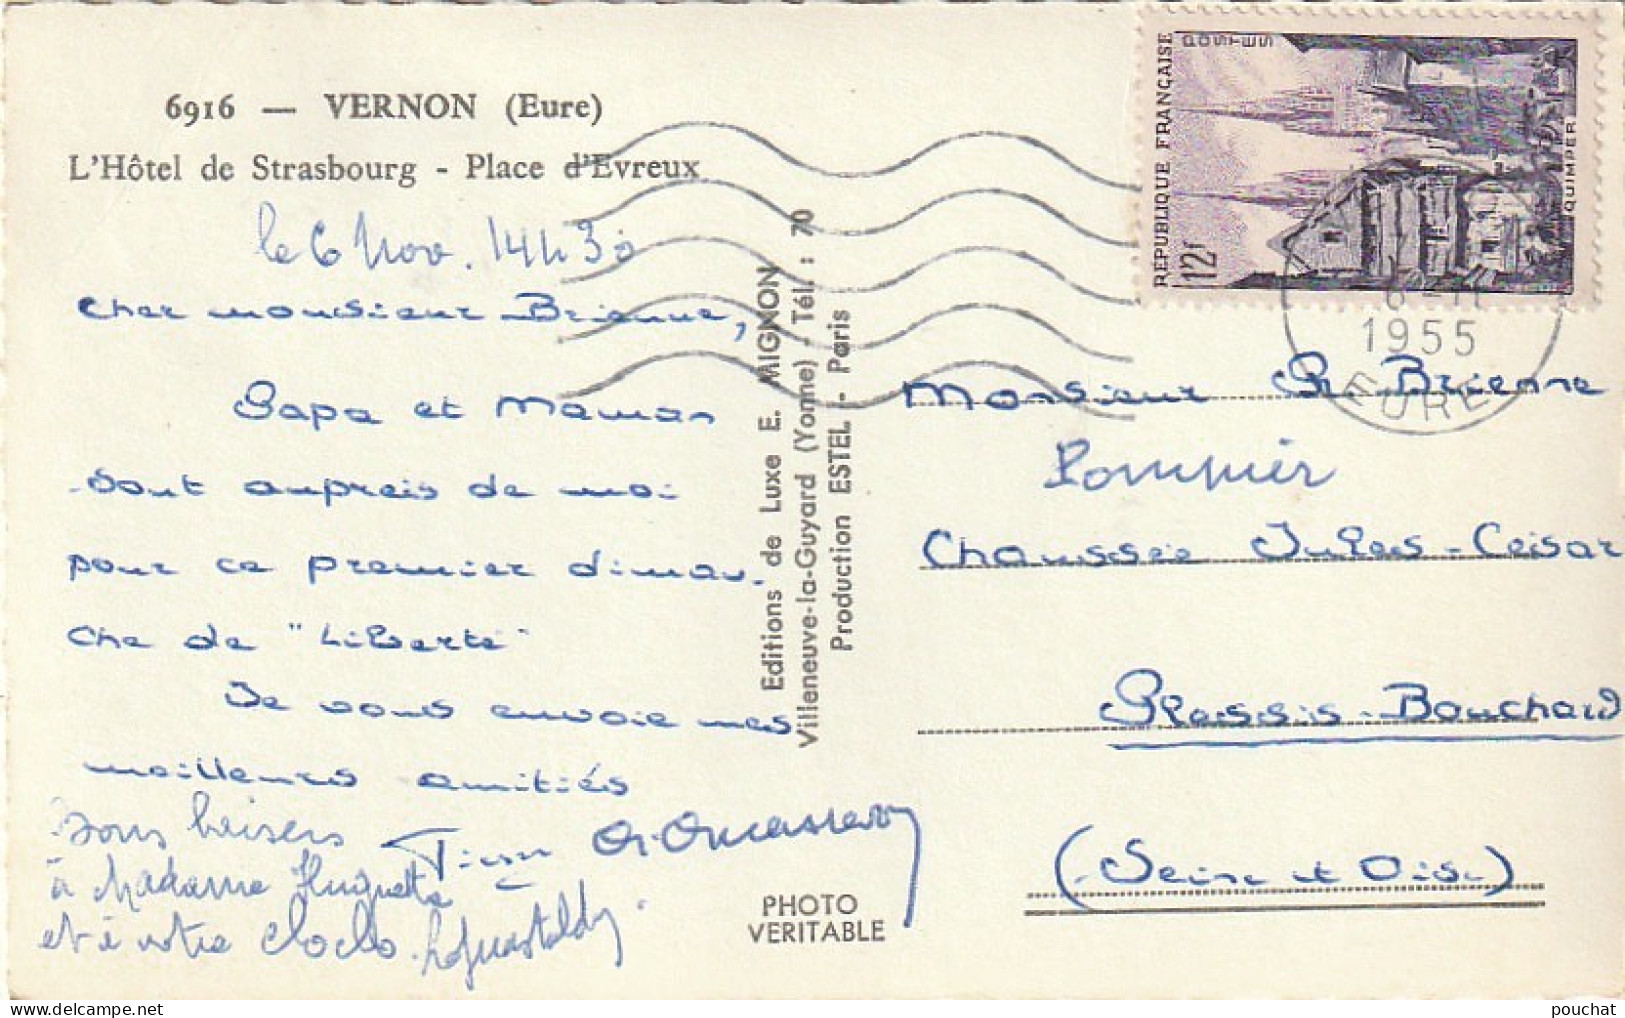 6916 — VERNON (Eure)
L'Hôtel de Strasbourg - Place d'Evreux
le 6 Nov. 14h30
Cher monsieur Brienne,
Papa et Maman
sont auprès de moi
pour ce premier diman-
che de "Liberté"
Je vous envoie mes
meilleures amitiés
bons baisers
à Madame Huguette
et à votre cloclo.
Editions de Luxe E. MIGNON
Villeneuve-la-Guyard (Yonne) - Tél. : 70
Production ESTEL - Paris
PHOTO
VERITABLE
RÉPUBLIQUE FRANÇAISE
POSTES
12F
QUIMPER
6-11
1955
EURE
Monsieur R. Brienne
Pompier
Chaussée Jules-César
Plessis-Bouchard
(Seine et Oise)
pouchat